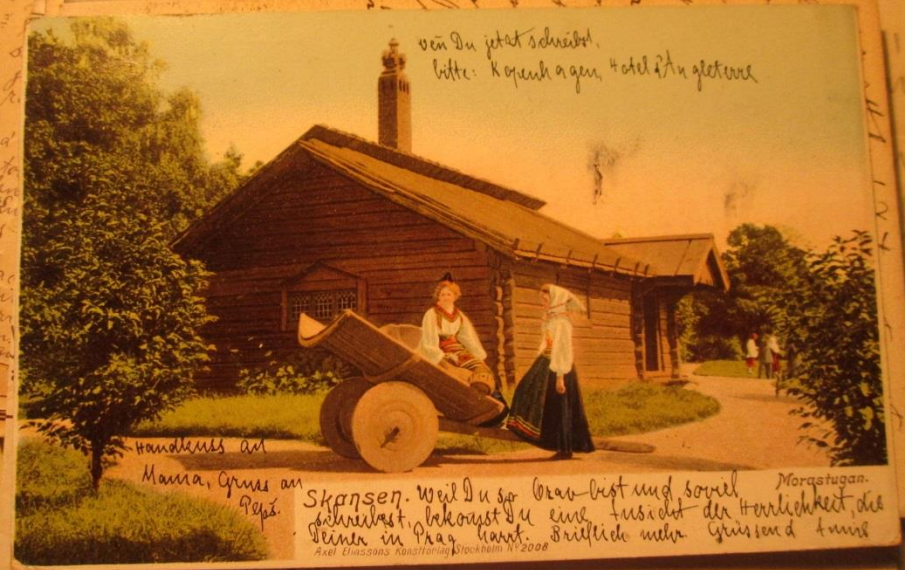 wen Du jetzt schreibst,
bitte: Kopenhagen, Hotel d'Angleterre
Handkuss an
Mama, Gruss an
Pepš.
Morastugan.
Skansen. Weil Du so brav bist und soviel
schreibst, bekomst Du eine Ansicht der Herrlichkeit, die
Deiner in Prag harrt. Brieflich mehr Grüssend Annie
Axel Eliassons Konstförlag Stockholm Nº 2008